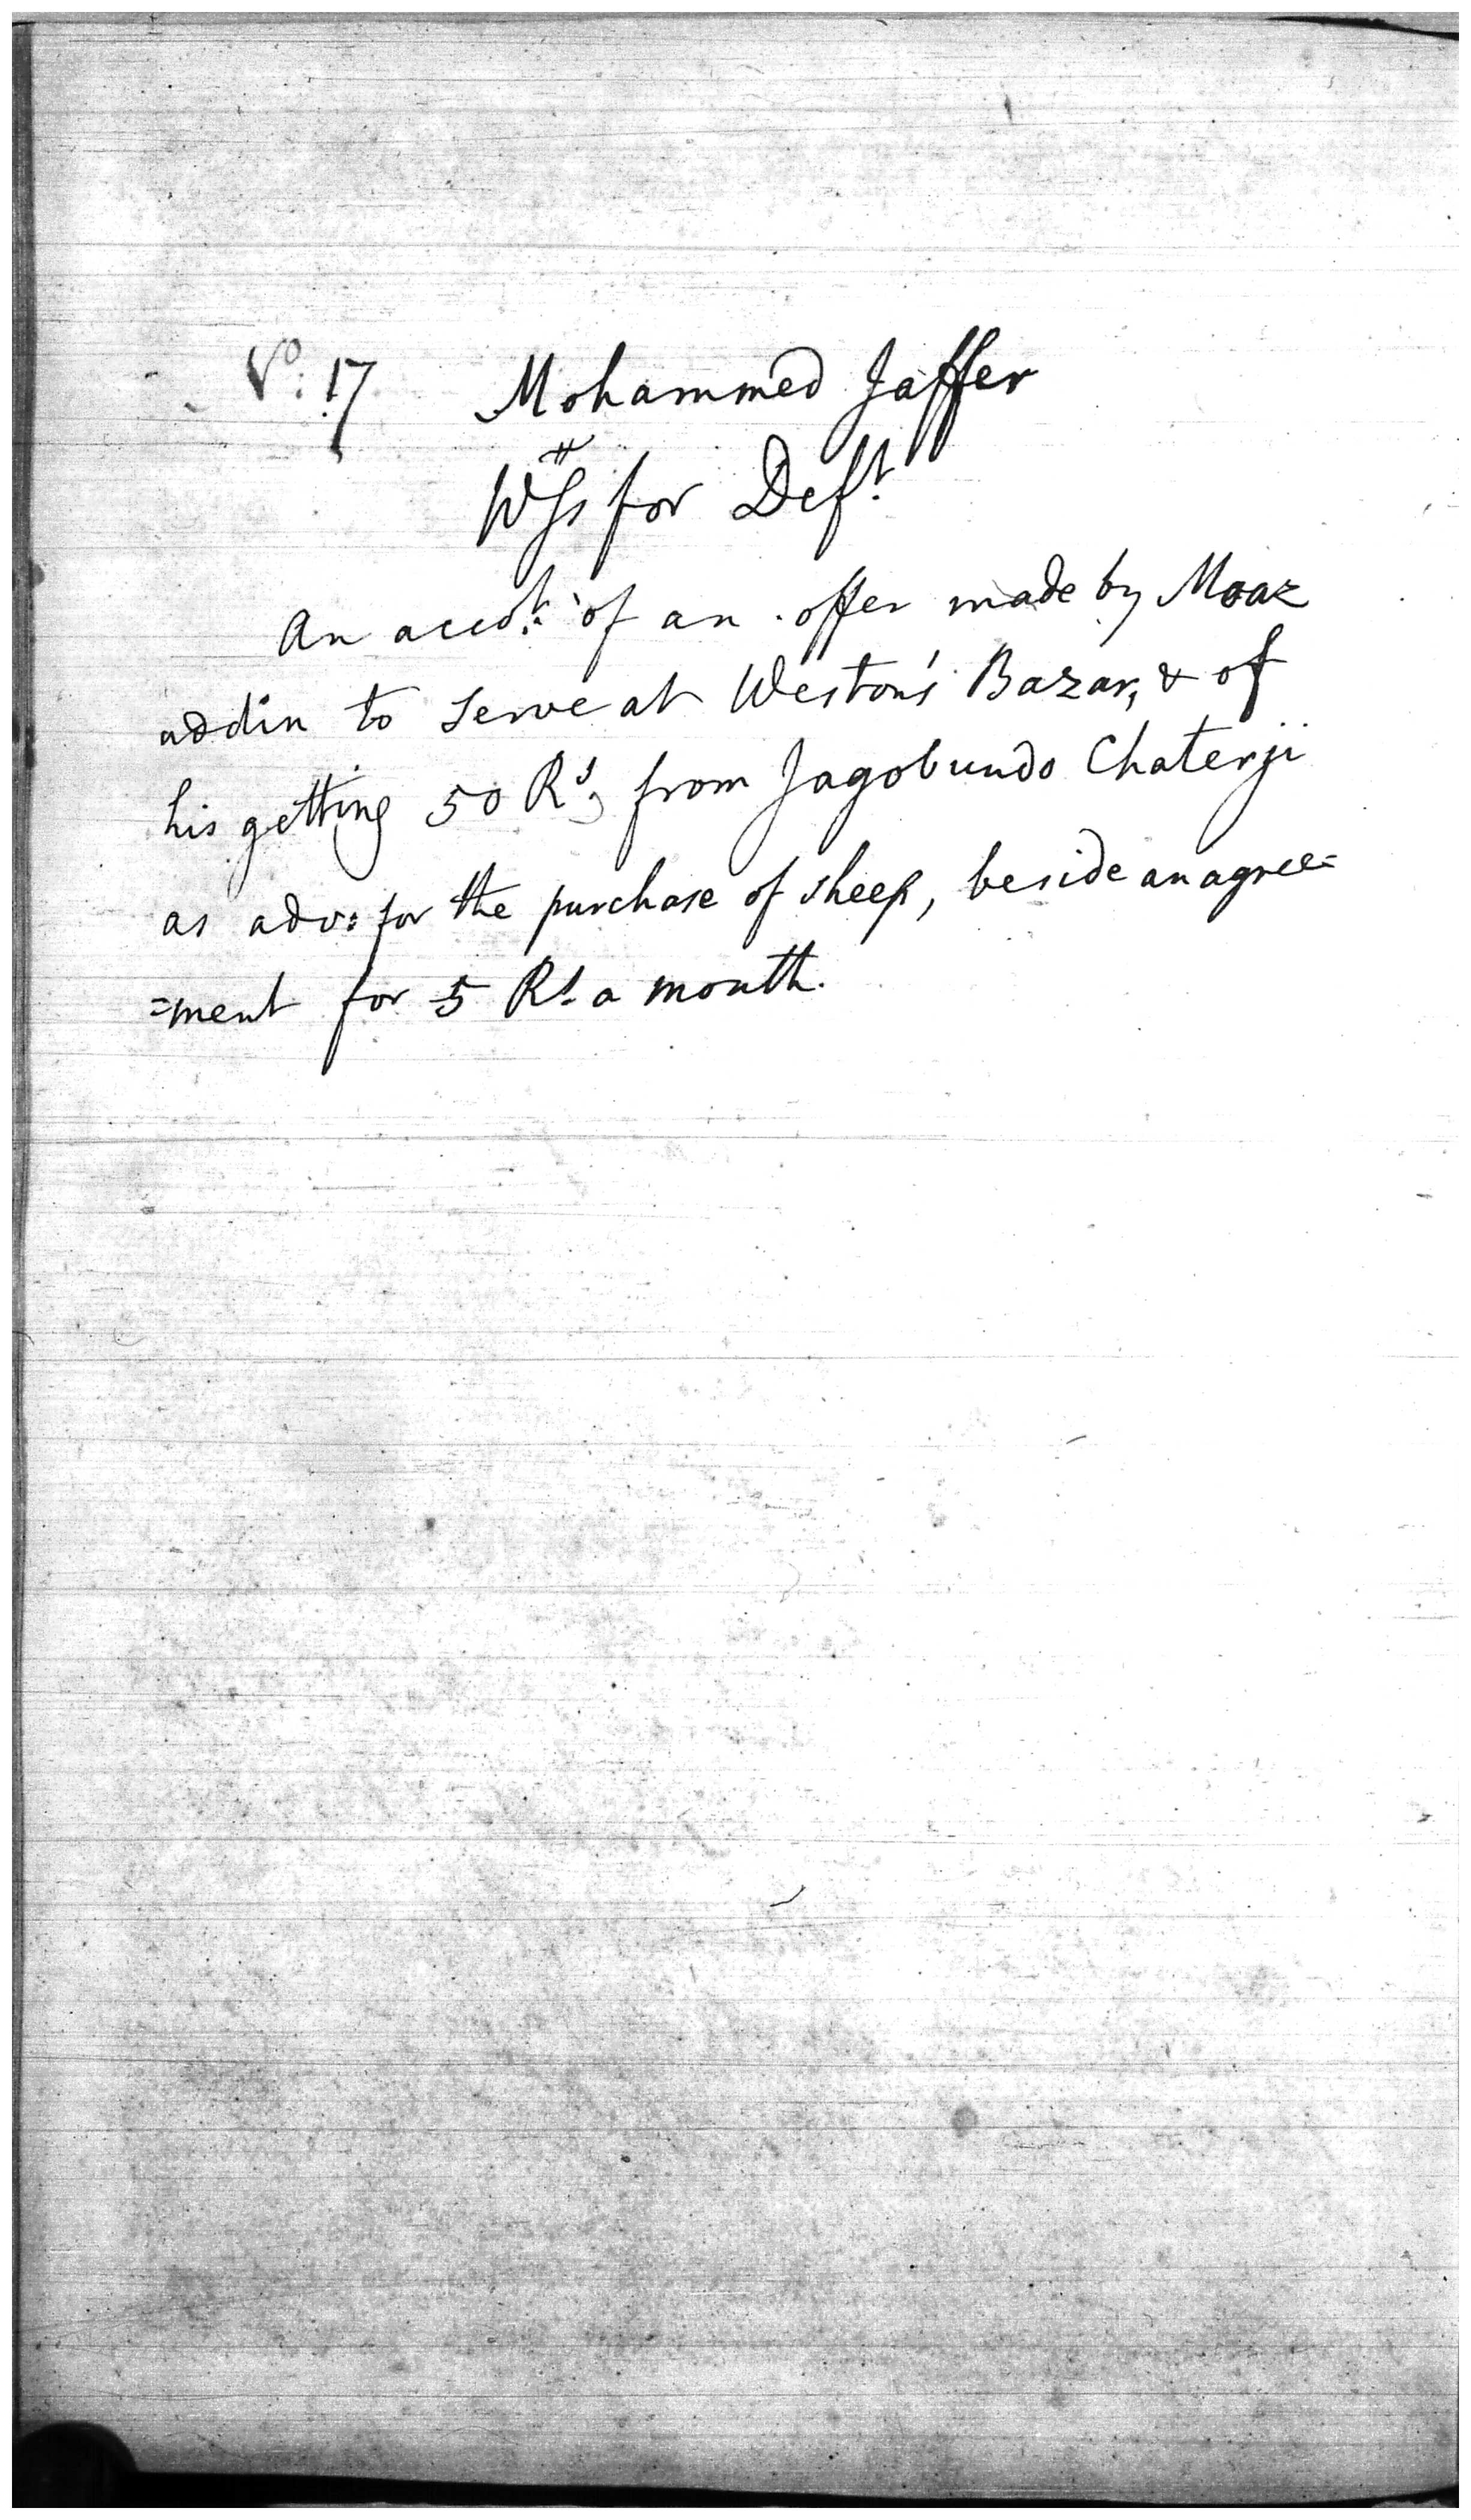 No: 17 Mohammed Jaffer
Wss for Deft
An accot: of an offer made by Moaz
addin to serve at Weston's Bazar, & of
his getting 50 Rs, from Jagobundo Chaterji
as adv: for the purchase of sheep, beside an agree=
=ment for 5 Rs a month.